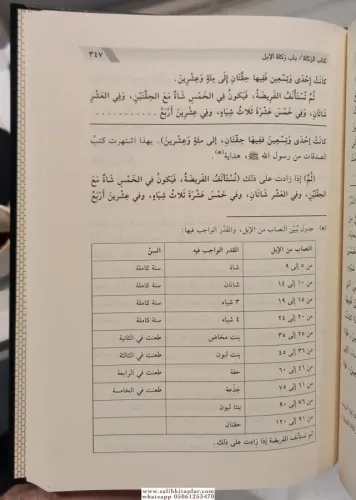 كتاب الزكاة/ باب زكاة الإبل
٣٤٧
كَانَتْ إِحْدَى وَتِسْعِينَ فَفِيهَا حِقَّتَانِ إِلَى مِئَةٍ وَعِشْرِينَ.
ثُمَّ تُسْتَأْنَفُ الفَرِيضَةُ، فَيَكُونُ فِي الخَمْسِ شَاةٌ مَعَ الحِقَّتَيْنِ، وَفِي العَشْرِ
شَاتَانِ، وَفِي خَمْسَ عَشْرَةَ ثَلَاثُ شِيَاهٍ، وَفِي عِشْرِينَ أَرْبَعُ ............
كَانَتْ إِحْدَى وَتِسْعِينَ فَفِيهَا حِقَّتَانِ، إِلَى مِئَةٍ وَعِشْرِينَ). بهذا اشتهرت كتبُ
الصدقات من رسول الله ﷺ، هداية(٥).
(ثُمَّ) إذا زادت على ذلك (تُسْتَأْنَفُ الفَرِيضَةُ، فَيَكُونُ فِي الخَمْسِ شَاةٌ مَعَ
الحِقَّتَيْنِ، وَفي العَشْرِ شَاتَانِ، وَفي خَمْسَ عَشْرَةَ ثَلَاثُ شِيَاهٍ، وفي عِشْرِينَ أَرْبَعُ
(٥) جدول يُبيّن النصاب من الإبل، والقَدْر الواجب فيها:
النصاب من الإبل القدر الواجب فيه السنّ
من ٥ إلى ٩ شاة سنة كاملة
من ١٠ إلى ١٤ شاتان سنة كاملة
من ١٥ إلى ١٩ ٣ شياه سنة كاملة
من ٢٠ إلى ٢٤ ٤ شياه سنة كاملة
من ٢٥ إلى ٣٥ بنت مخاض طعنت في الثانية
من ٣٦ إلى ٤٥ بنت لبون طعنت في الثالثة
من ٤٦ إلى ٦٠ حقة طعنت في الرابعة
من ٦١ إلى ٧٥ جَذَعة طعنت في الخامسة
من ٧٦ إلى ٩٠ بنتا لبون
من ٩١ إلى ١٢٠ حقتان
ثم تستأنف الفريضة إذا زادت على ذلك.
www.salihkitaplar.com
whatsapp 05061255470